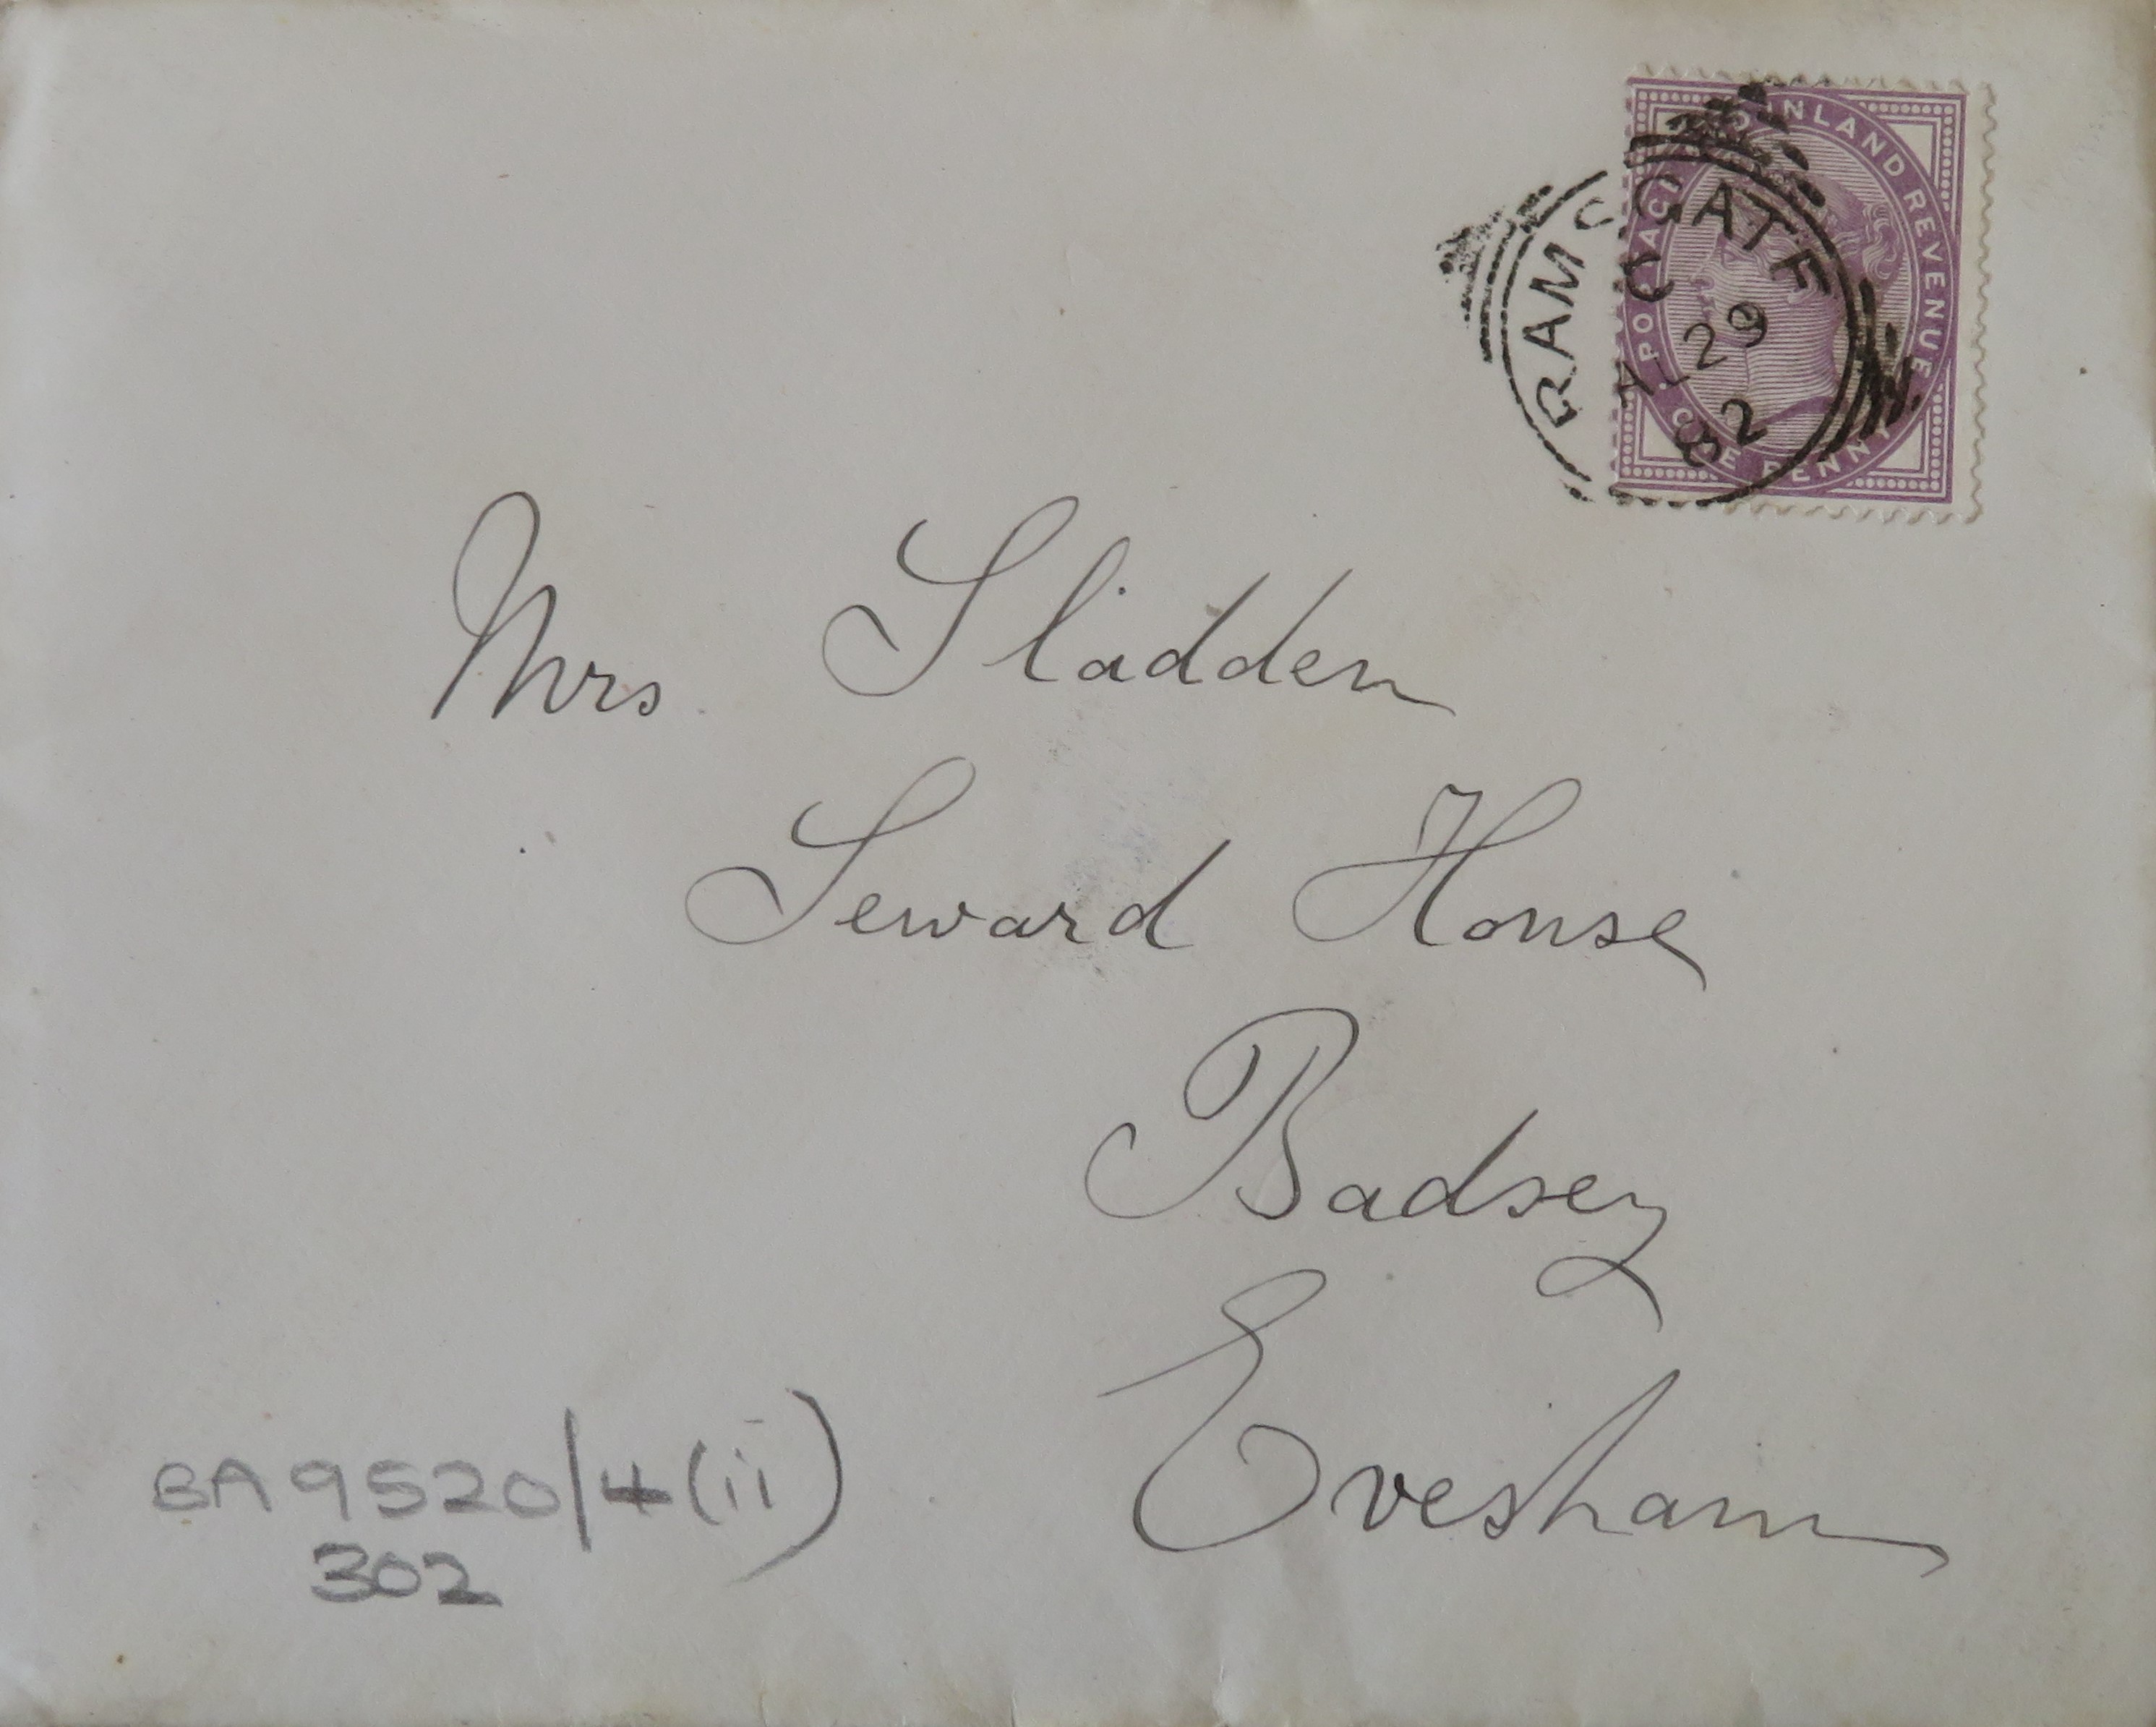 POSTAGE AND INLAND REVENUE
ONE PENNY
RAMSGATE
29
82
Mrs Sladden
Seward House
Badsey
Evesham
BA9520/4(ii)
302